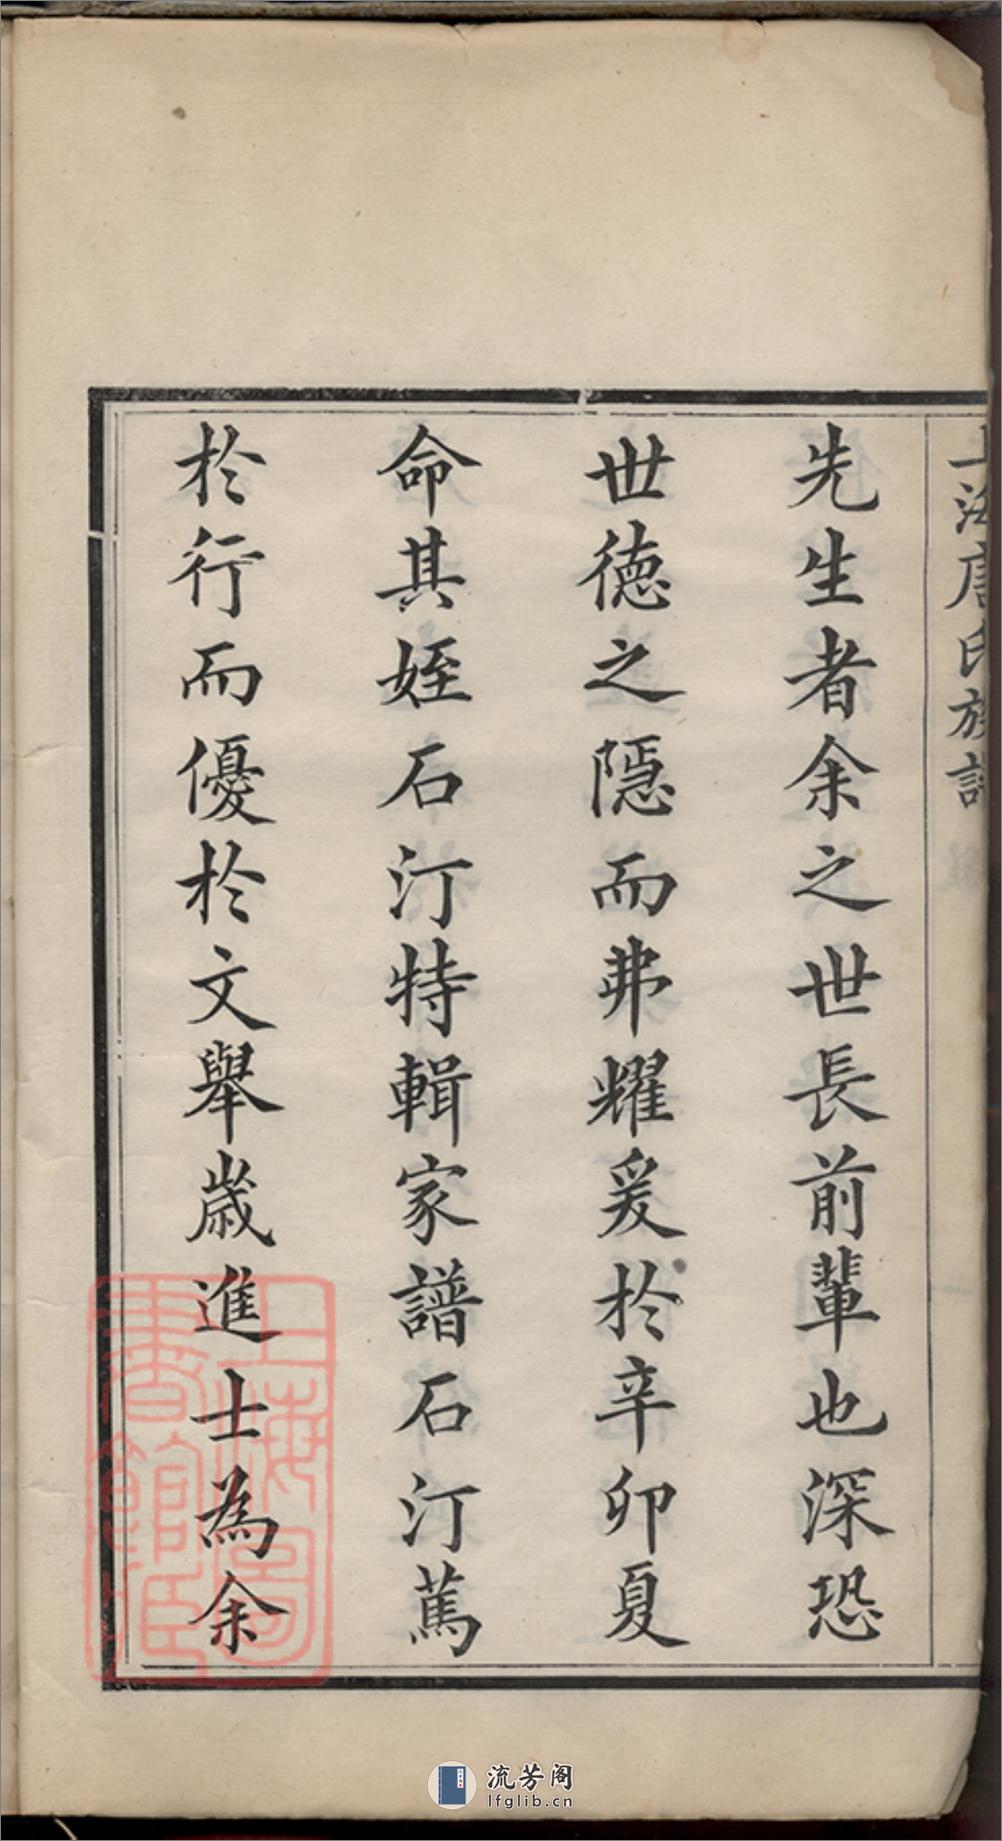 上海唐氏族譜
先生者余之世長前輩也深恐
世德之隱而弗耀爰於辛卯夏
命其姪石汀特輯家譜石汀篤
於行而優於文舉歲進士為余
上海圖
書館藏
流芳阁
lfglib.cn